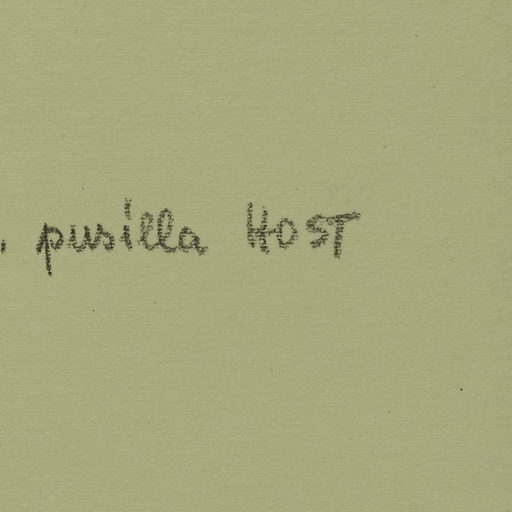 . pusilla HOST